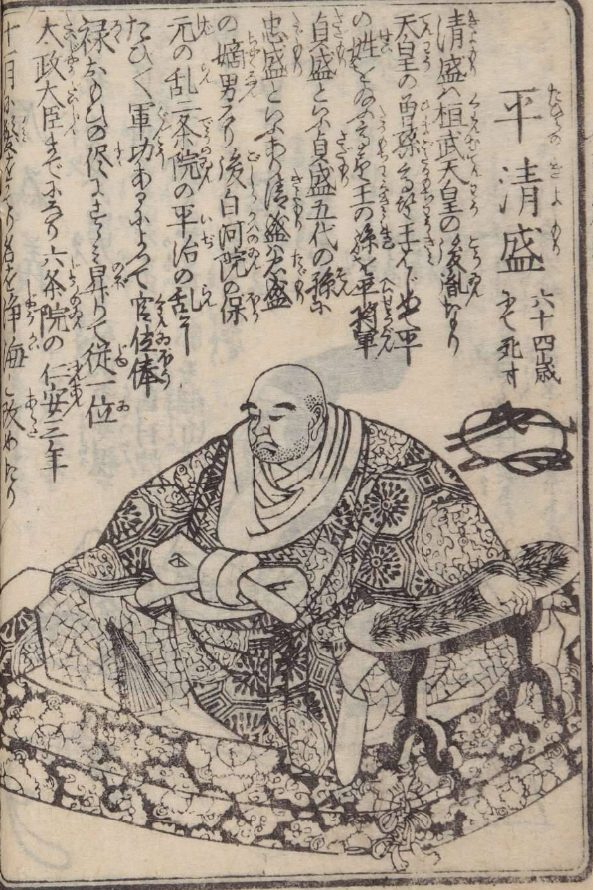 平清盛
六十四歳
にて死す
清盛ハ桓武天皇の後胤なり
天皇の曽孫高望王より平
の姓を 高望王の孫を平将軍
貞盛といふ貞盛五代の孫を
忠盛といふなり清盛ハ忠盛
の嫡男なり後白河院の保
元の乱二条院の平治の乱に
たひ〳〵軍功あるによつて官位俸
禄 侭に昇りて従一位
太政大臣までになり六条院の仁安三年
十一月 名を浄海と改めたり